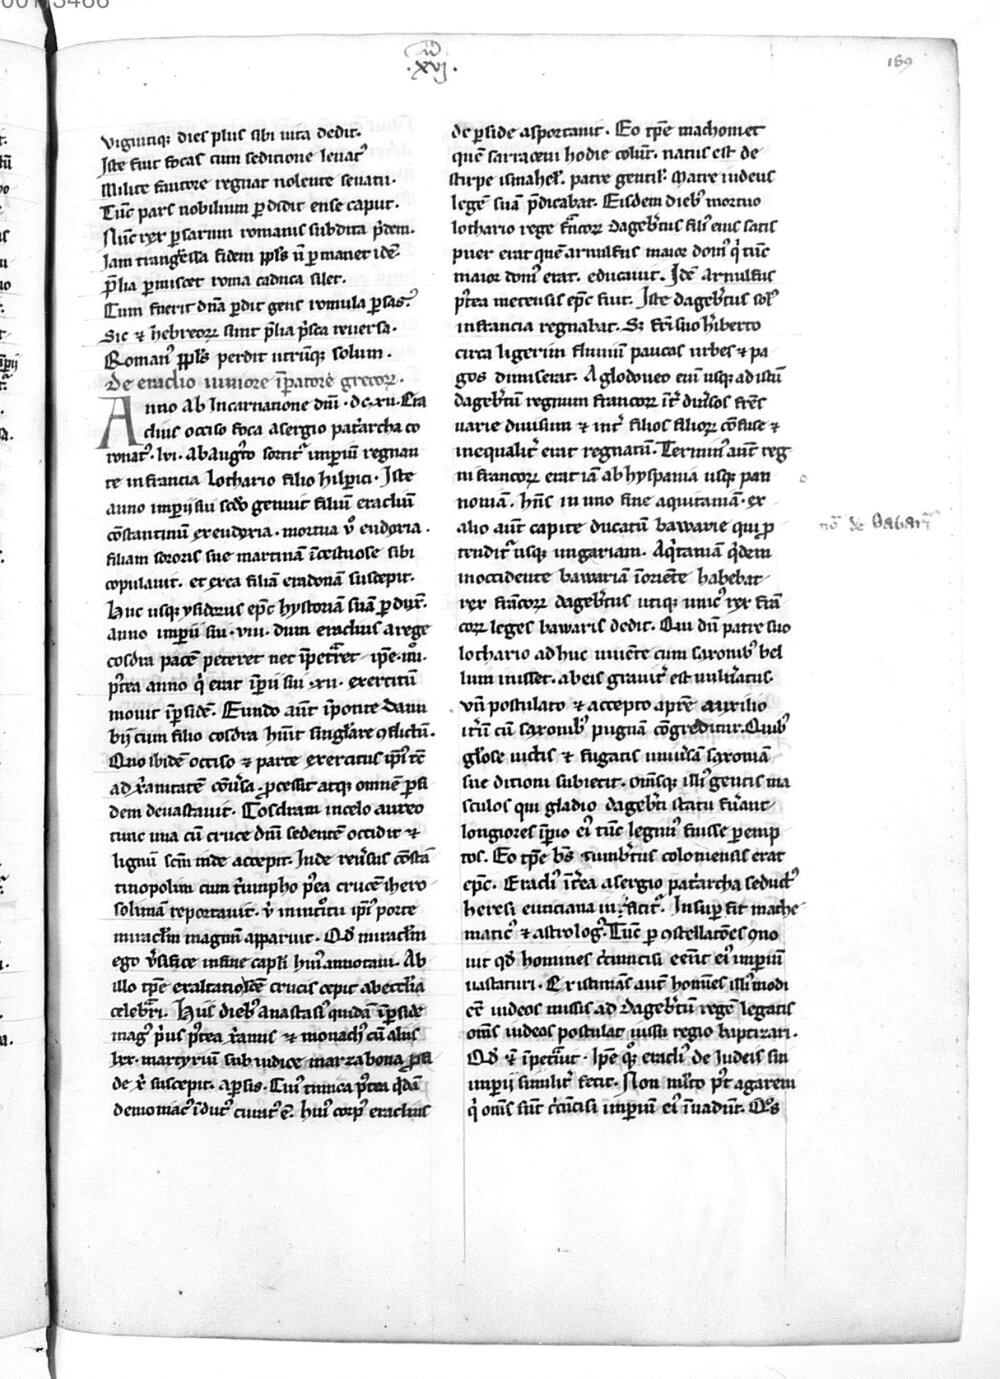 xvi
189
viginti⁊ dies plus sibi uita dedit.
Iste fuit focas cum seditione leuat᷒
Milite fautore regnat nolente senatu.
Tūc pars nobilium ꝑdidit ense caput.
Nūc rex ꝑsarum romanis subdita p̄dem.
Iam trangressa fidem ppl̄s n̄ ꝑmanet idē.
p̄lia ꝑmiscet roma caduca silet.
Cum fuerit dn̄a ꝑdit gens romula ꝑsas.
Sic ⁊ hebreoꝝ sunt p̄lia p̄sca reuersa.
Roman᷒ ppl̄s perdit utrūq; solum.
de eraclio iuniore īpatore grecoꝝ.
Anno Ab Incarnatione dn̄i .dc.xii. Era
clius occiso foca a sergio pat͛archa co
ronat᷒ .lvi. Ab Augu͛to sortit᷒ imperiū regnan
te in francia Lothario filio hilp̄ici. Iste
anno imperij sui sc̄do genuit filiū eracliū
cōstantinū ex eudoxia. mortua v̊ eudoxia.
filiam sororis sue martinam īcestuose sibi
copulauit. et ex ea filiā eradonā suscepit.
Huc usq; ysidorus ep̄c hystoriā suā ꝑduxit.
anno imperii sui .viii. dum eraclius a rege
cosdra pacē peteret nec īpetr͛et
p̄tea anno q̇ erat īperii sui .xv. exercitū
mouit ī ꝑsidē. Eundo aūt ī ponte danu
bij cum filio cosdra hūit singl̄are ꝯflictū.
Quo ibidē occiso ⁊ parte exercitus ip̄i᷒
ad xp̄anitatē cōu͛sa. ꝓcessit atq; omnē ꝑsi
dem deuastauit. Cosdram in celo aureo
tunc una cū cruce dn̄i sedentē occidit ⁊
lignū sc̄m inde accepit. Inde reu͛sus cōsta
tinopolim cum t͛umpho p̄ea crucē ihero
solimā reportauit. vbi in introitu ip̄i᷒ porte
miracl̄m magnū apparuit. Qd̄ miracl̄m
ego in fine cap̄li hui᷒ annotaui. Ab
illo tp̄e exaltatio sc̄e crucis cepit ab eccl̄ia
celebr͛i. Hiis dieb᷒ Anastasi᷒ quidā ī ꝑside
mag᷒ p̄us p̄tea xp̄anus ⁊ monach᷒ cū aliis
lxx. martyriū sub iudice marzabona
de xp̄i suscepit. a ꝑsis. Cui᷒ tunica p̄tea q̄dā
demoniac᷒ īdut᷒ curat᷒ ē. hui᷒ corp᷒ eraclius
de ꝑside asportauit. Eo tp̄e machomet
quē sarraceni hodie colūt. natus est de
stirpe ismahel᷒. patre gentil᷒. Matre iudeus
legē suā p̄dicabat. Eisdem dieb᷒ mortuo
lothario rege fr̄ncoꝝ dagob͛tus fili᷒ eius satis
puer erat quē arnulfus maior dom᷒ q̇ tūc
maior dom᷒ erat. educauit. Idē Arnulfus
p̄tea metensis ep̄c fuit. Iste dagob͛tus sol᷒
in francia regnabat. S; fr͛i suo h͛iberto
circa ligerim fluuiū paucas urbes ⁊ pa
gos dimiserat. A glodoueo eni᷒ usq; ad istū
dagob͛tū regnum francoꝝ īt͛ diu͛sos fr͛es
uarie diuisum ⁊ int͛ filios filioꝝ cōfuse ⁊
inequalit͛ erat regnatū. Termin᷒ aūt reg
ni francoꝝ erat iā ab hyspania usq; pan
noniam. hn̄s in uno fine aquitaniā. ex
alio aūt capite ducatū bawarie qui ꝓ
tendit᷒ usq; ungariam. Aq͛taniā q̄dem
in occidente bawariā ī oriēte habebat
rex francoꝝ dagob͛tus utiq; unic᷒ rex frā
coꝝ leges bawaris dedit. Qui dū patre suo
lothario ad huc uiuēte cum saxonib᷒ bel
lum inisset. ab eis grauit͛ est uuln͛atus.
Vn̄ postulato ⁊ accepto a pr̄e auxilio
it͛ū cū saxonib᷒ pugnā cōgreditur. Quib᷒
gl̄ose uictis ⁊ fugatis uniu͛sā saxoniā
sue ditioni subiecit. omnesq; illi᷒ gentis ma
sculos qui gladio dagob͛ti statu fu͛ant
longiores īperio ei᷒ tūc legim᷒ fuisse ꝑemp
tos. Eo tp̄e b̄s cunib͛tus coloniensis erat
ep̄c. Eracli᷒ īt͛ea a sergio pat͛archa seduct᷒
heresi euticiana Insuper fit mathe
matic᷒ ⁊ astrolog᷒. Tūc ꝑ ꝯstellatōes ꝯno
uit qd̄ homines circūcisi eēnt ei᷒ imperiū
uastaturi. Existimās aūt homīes illi᷒modi
eē iudeos missis ad dagob͛tū regē legatis
om̄s iudeos postulat iussu regio baptizari.
Qd̄ ⁊ īpetrauit. Ip̄e quoq; eracli᷒ de Iudeis sui
imperii similit͛ fecit. Non multo post agareni
q̇ om̄s sunt circūcisi imperiū ei᷒ īuadūt. Quos
nō de Babari᷒